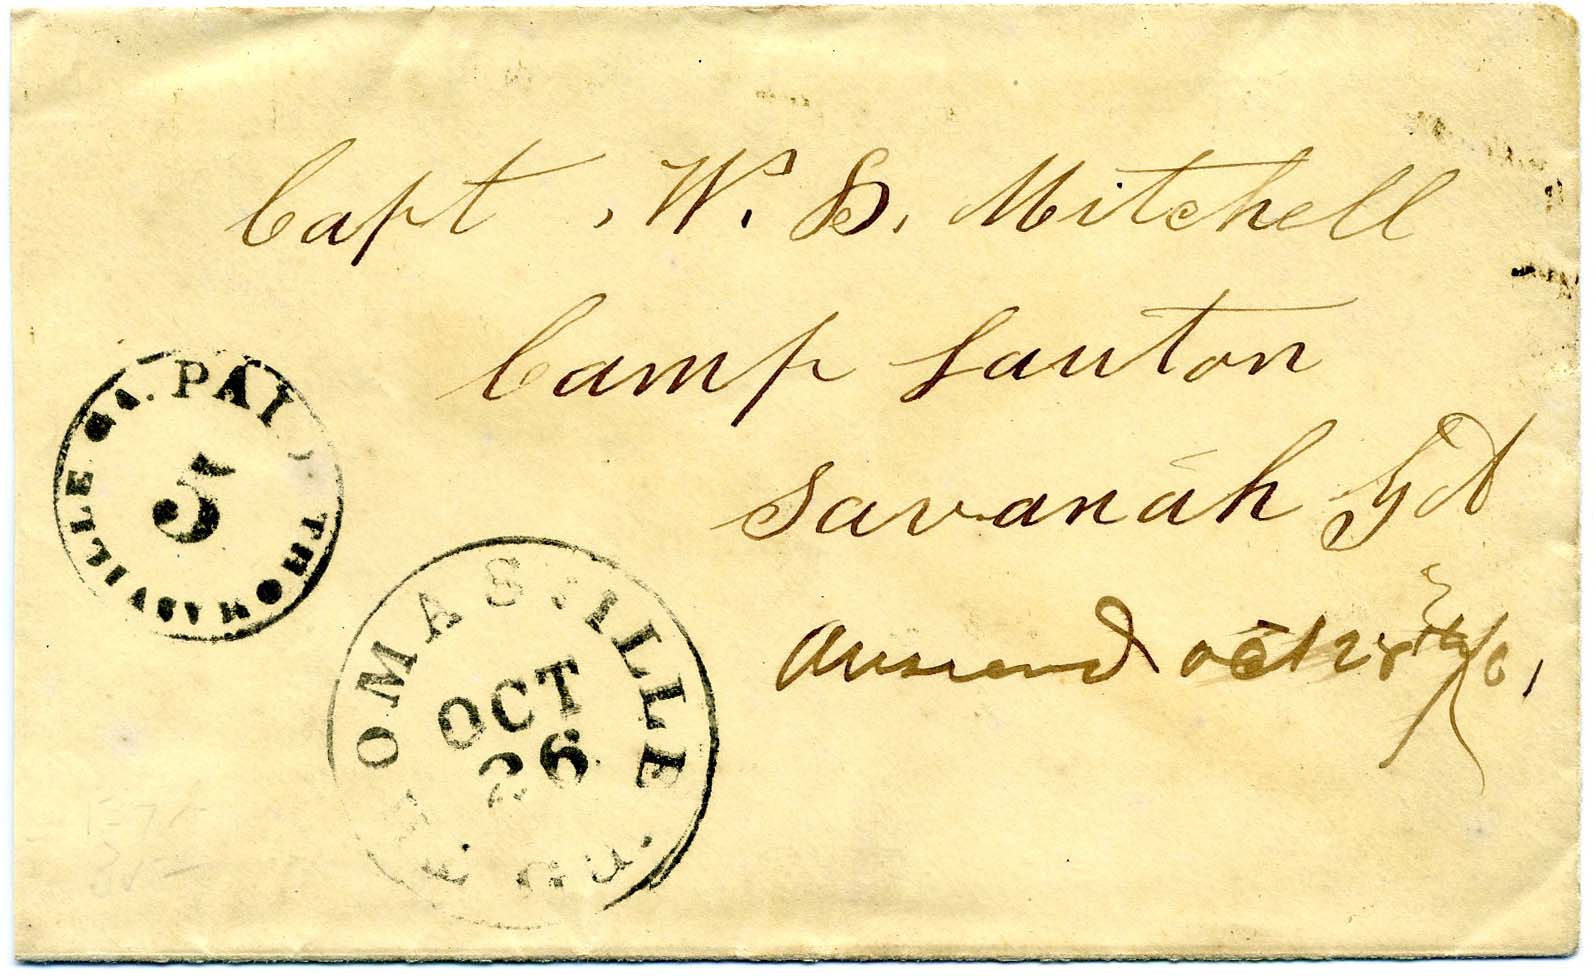 Capt. W. D. Mitchell
Camp Lauton
Savanah Ga
THOMASVILLE GA. PAID
5
THOMASVILLE Ga.
OCT
26
Oct 28th/61